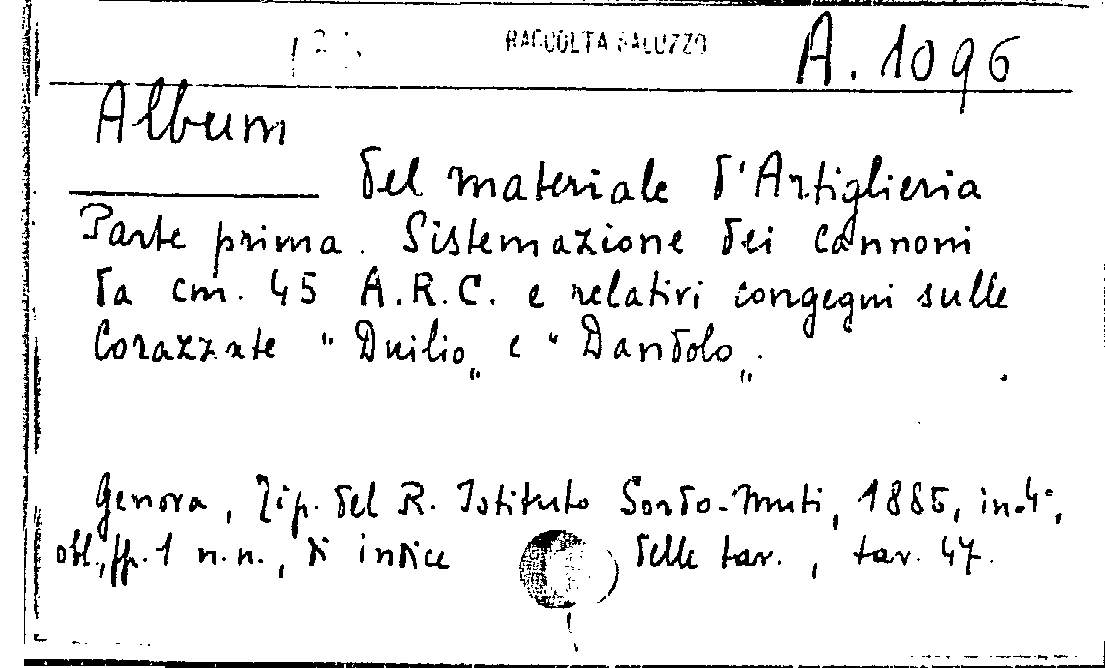 RACCOLTA SALUZZO A. 1096
Album
del materiale d'Artiglieria
Parte prima. Sistemazione dei cannoni
da cm. 45 A.R.C. e relativi congegni sulle
Corazzate "Duilio„ e "Dandolo„.
Genova, Tip. del R. Istituto Sordo-Muti, 1885, in-4°,
obl., pp. 1 n.n., di indice delle tav., tav. 47.